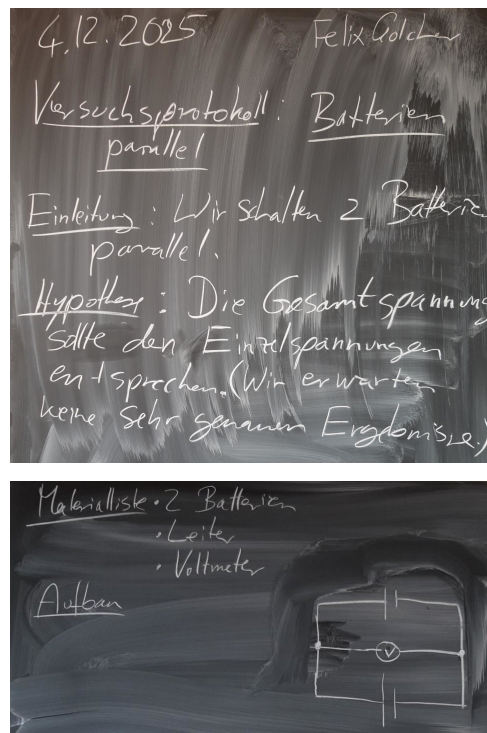 4.12.2025 Felix Gölcher
Versuchsprotokoll: Batterien
parallel
Einleitung: Wir schalten 2 Batterie
parallel.
Hypothese: Die Gesamtspannung
sollte den Einzelspannungen
entsprechen. (Wir erwarten
keine sehr genauen Ergebnisse.)
Materialliste • 2 Batterien
• Leiter
• Voltmeter
Aufbau
V